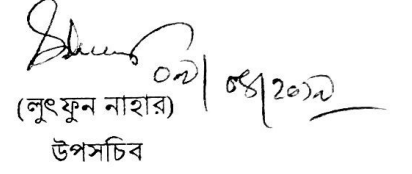 ০৯/০৪/২০১৯
(লুৎফুন নাহার)
উপসচিব